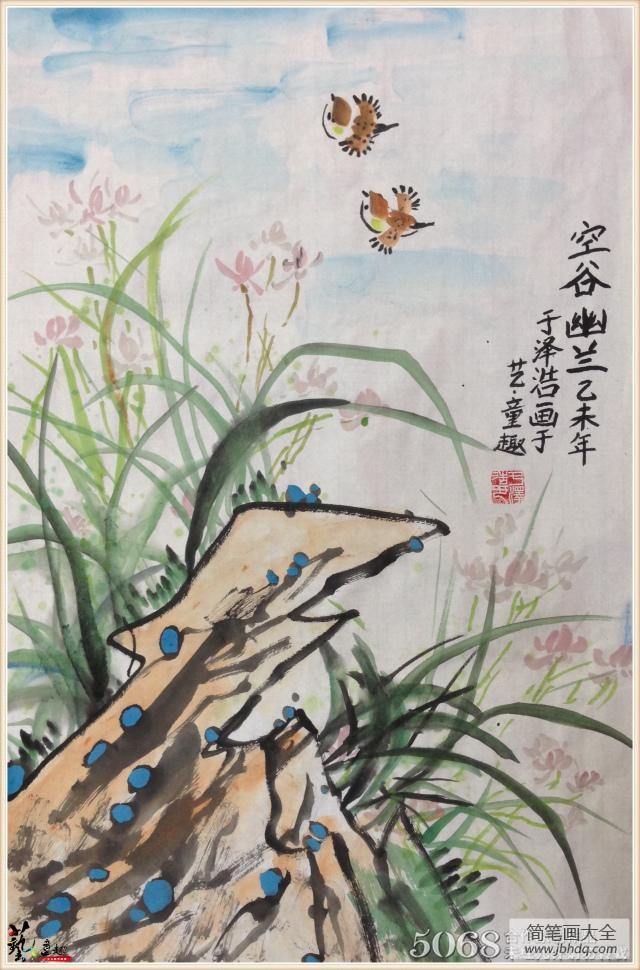 空谷幽兰乙未年
于泽浩画于
艺·童趣
藝童趣
5068
简笔画大全
www.jbhdq.com